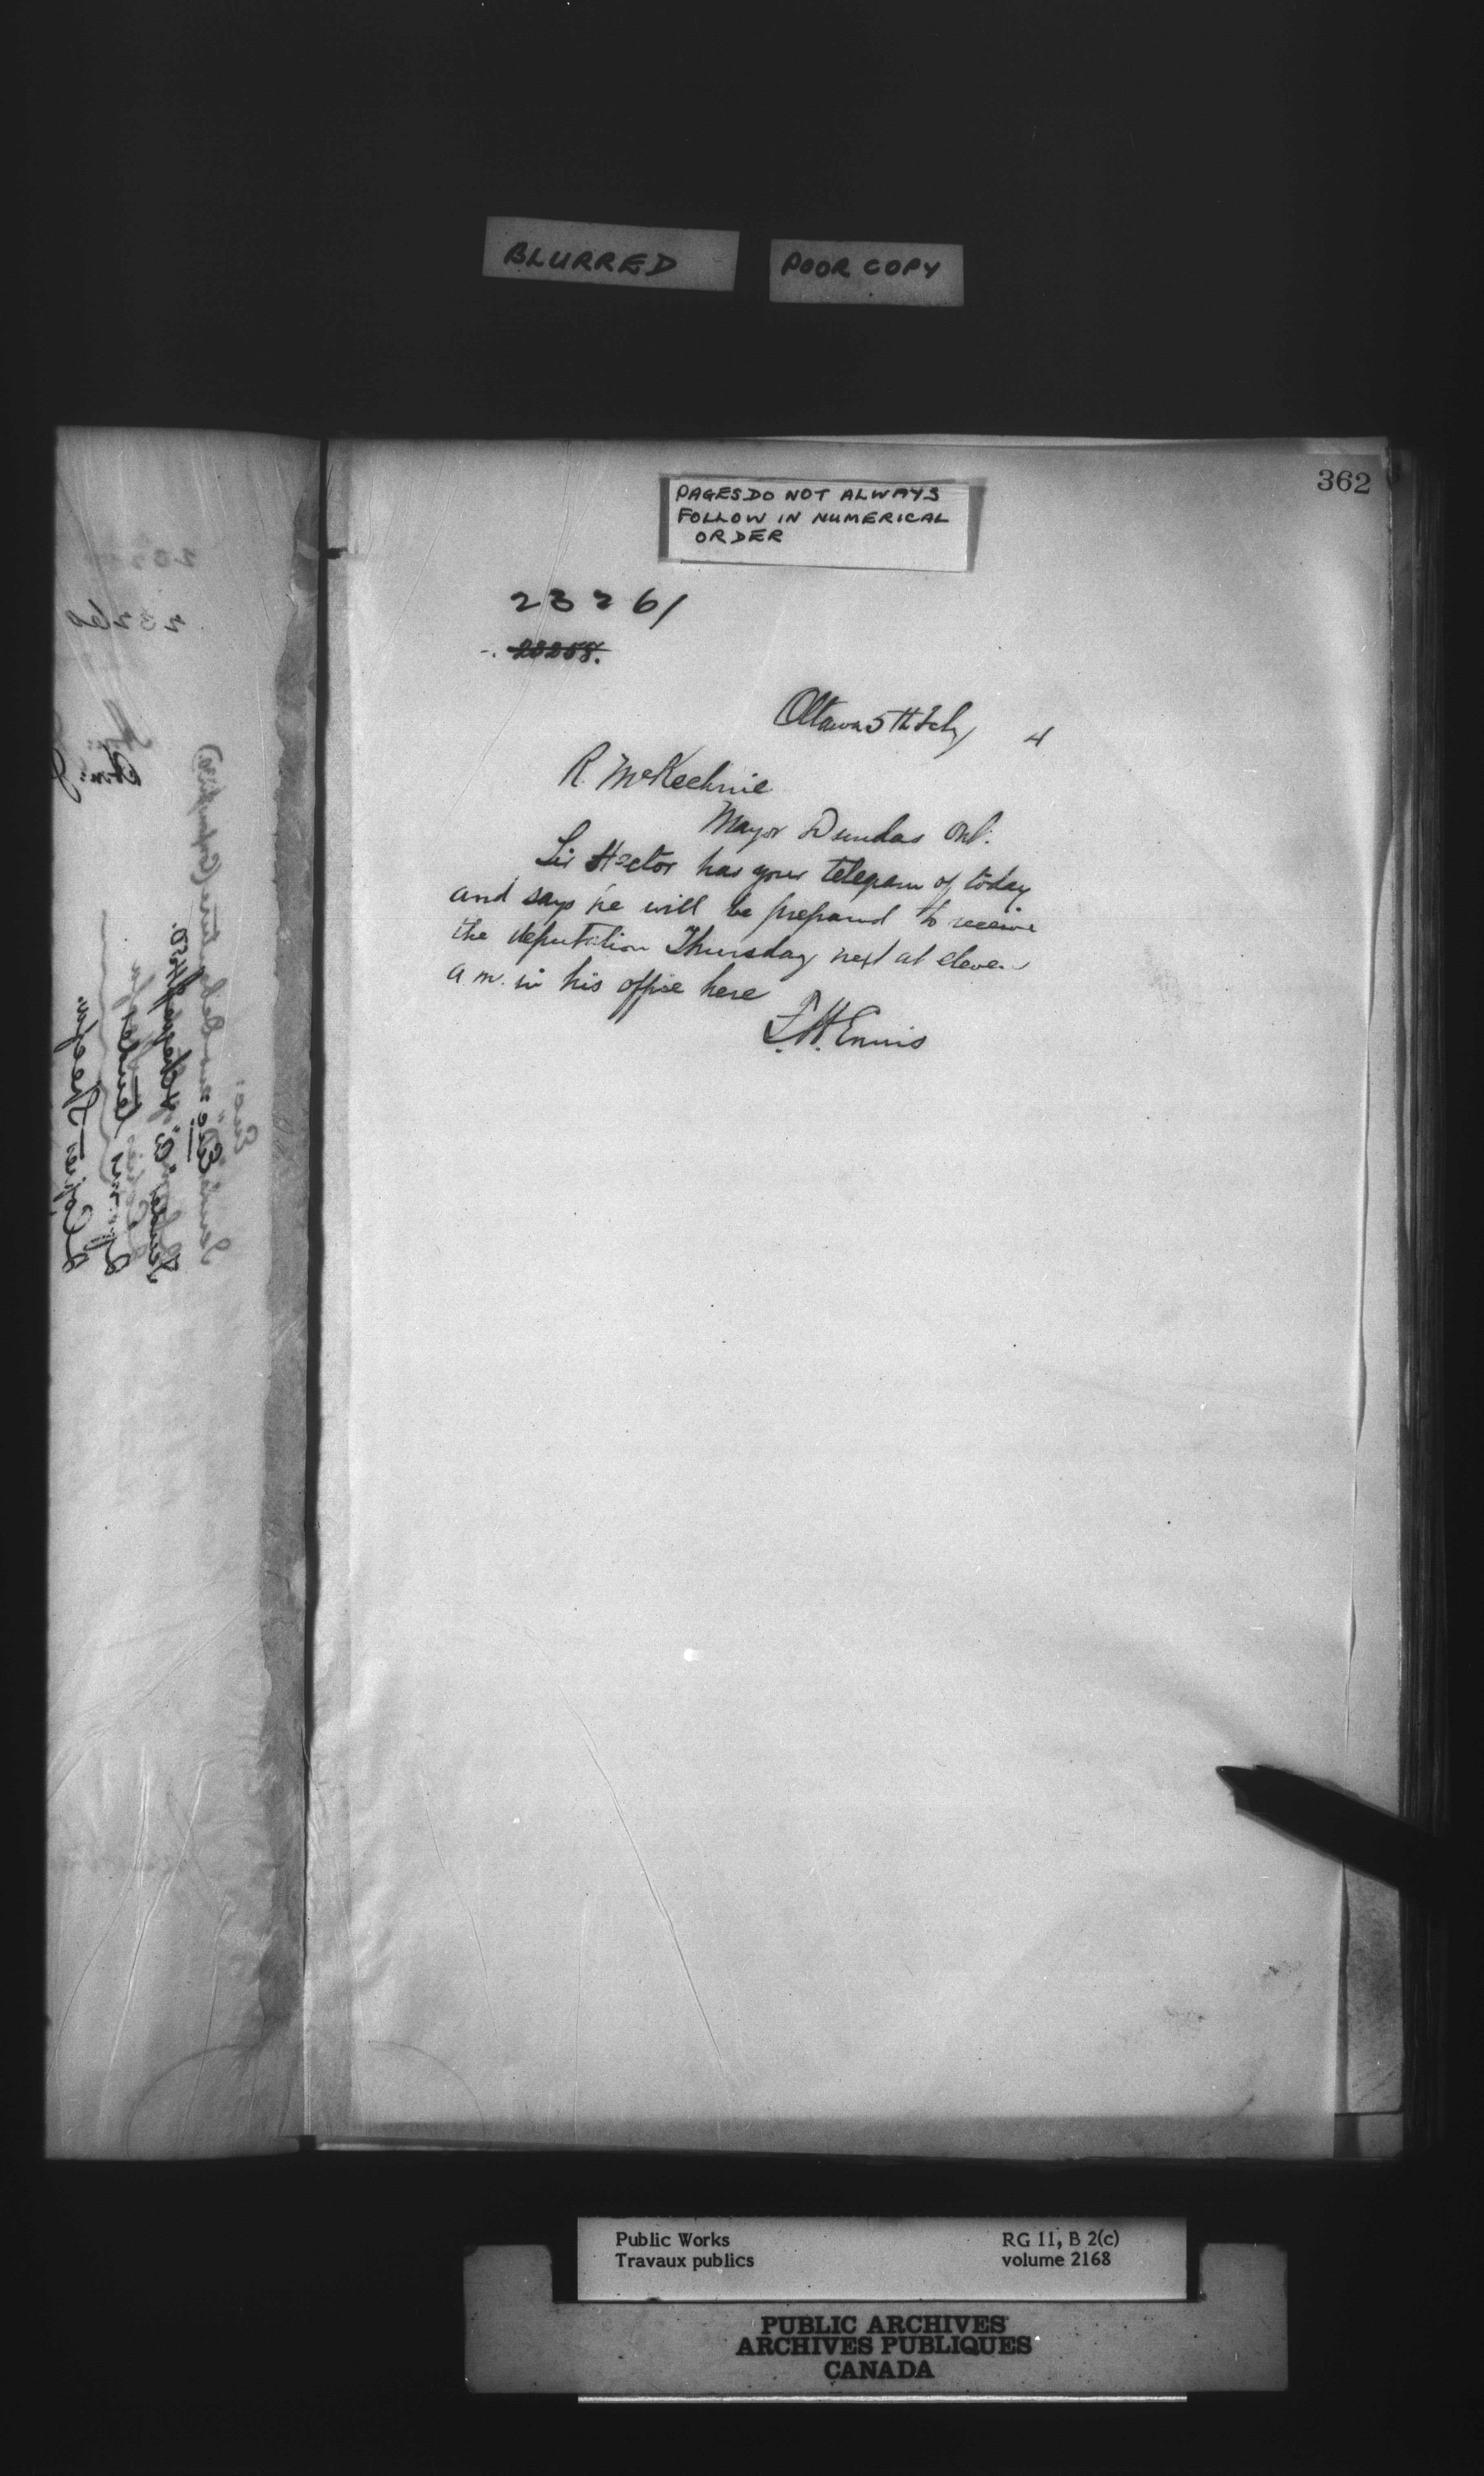 BLURRED
POOR COPY
362
PAGES DO NOT ALWAYS
FOLLOW IN NUMERICAL
ORDER
23261
23258.
Ottawa 5th Feby 4
R. McKechnie
Mayor Dundas Ont.
Sir Hector has your telegram of today
and says he will be prepared to receive
the deputation Thursday next at eleven
a.m. in his office here
F. H. Ennis
23260
Public Works
Travaux publics
RG 11, B 2(c)
volume 2168
PUBLIC ARCHIVES
ARCHIVES PUBLIQUES
CANADA